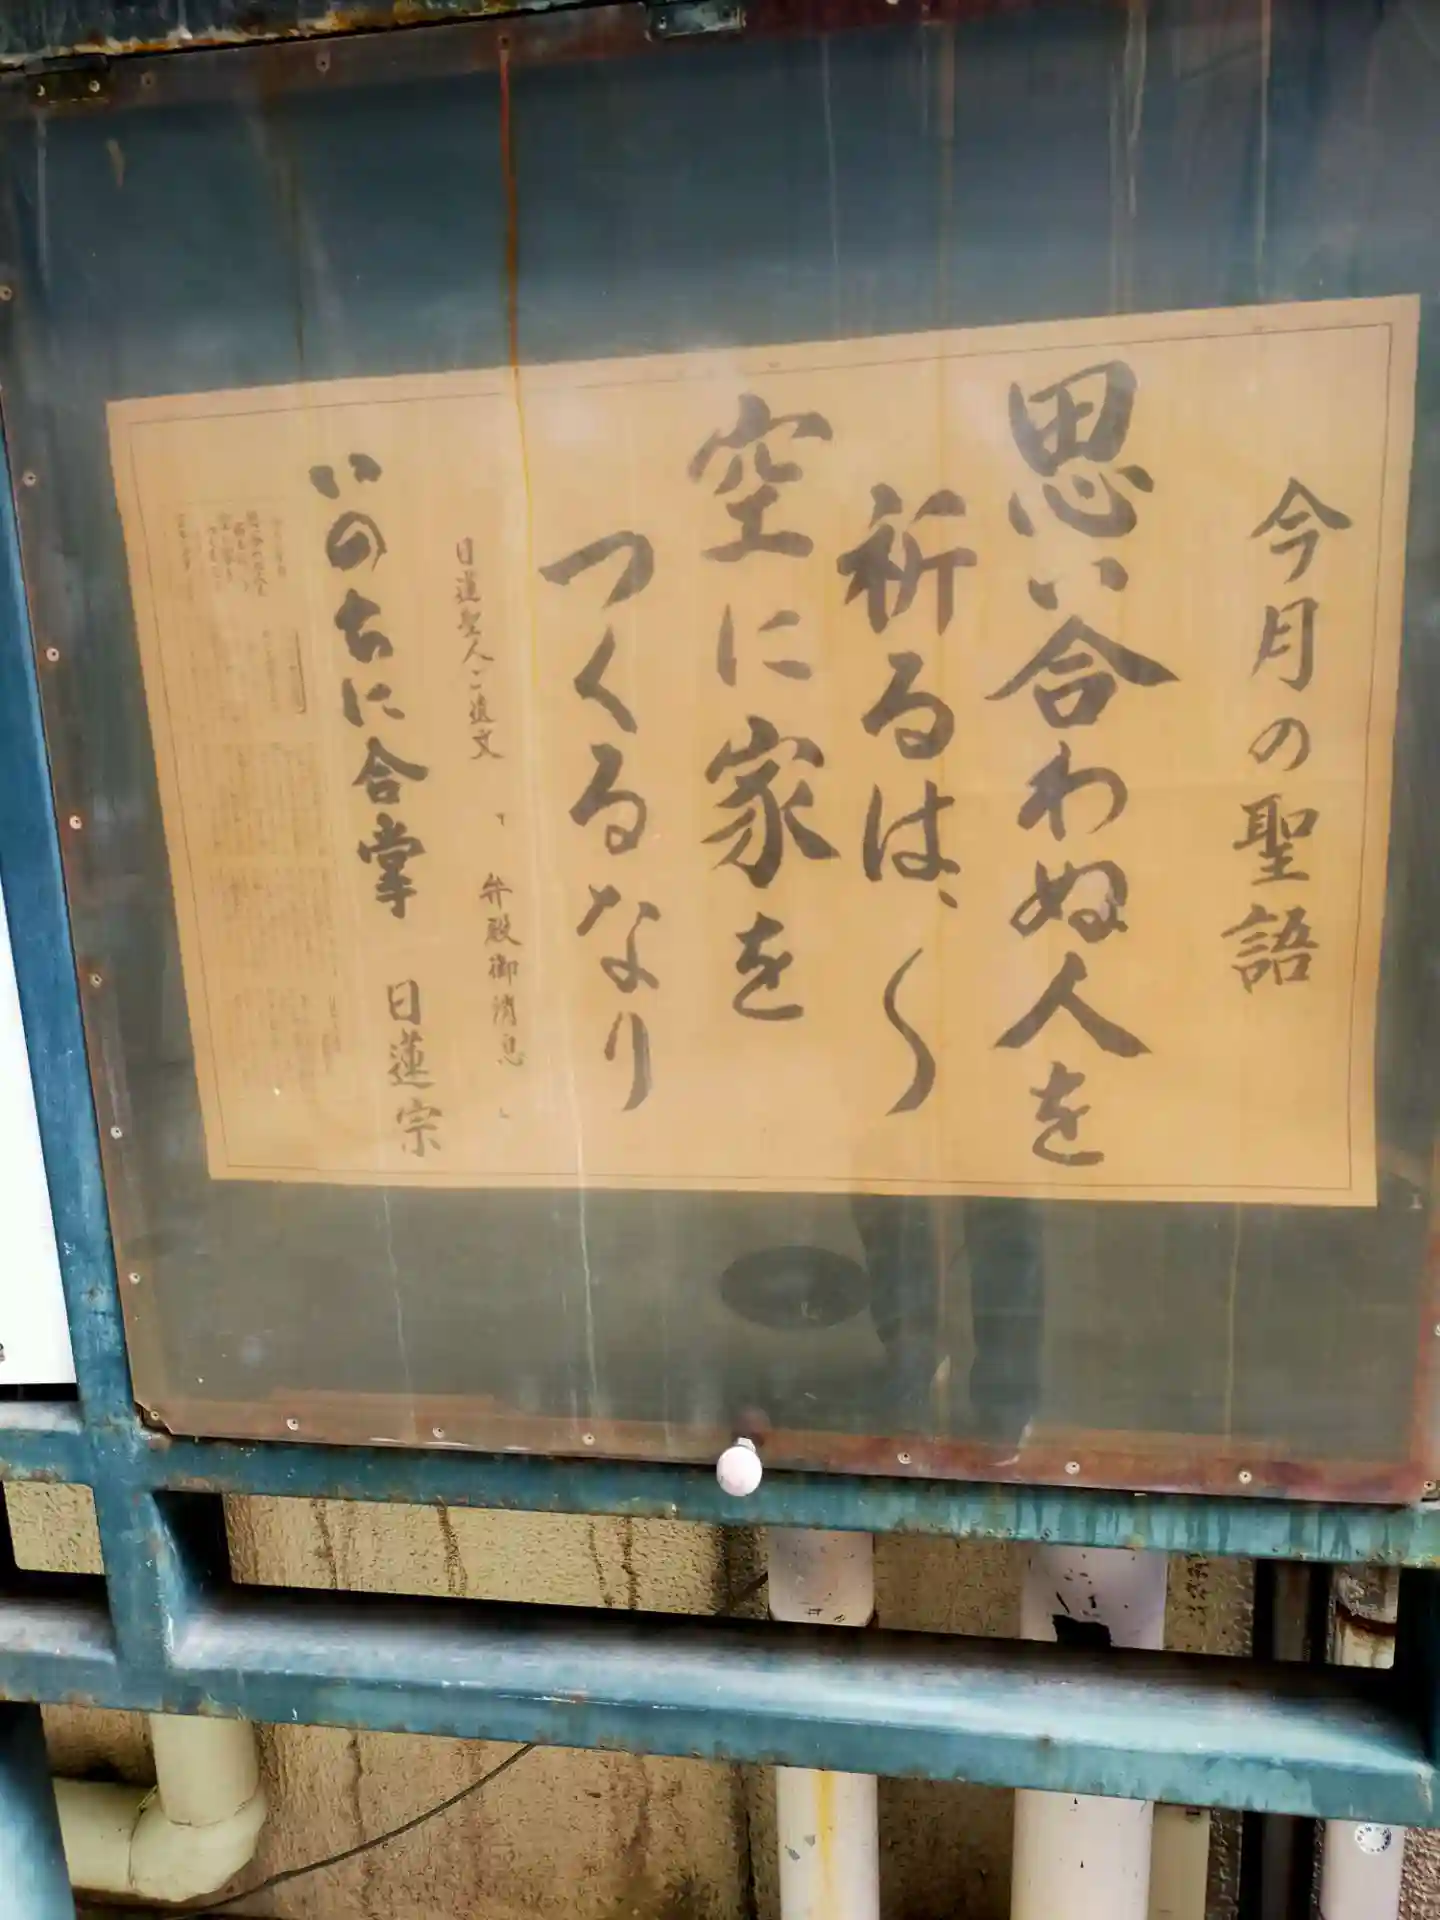 今月の聖語
思い合わぬ人を
祈るは、〱
空に家を
つくるなり
日蓮聖人ご遺文 「弁殿御消息」
いのちに合掌 日蓮宗